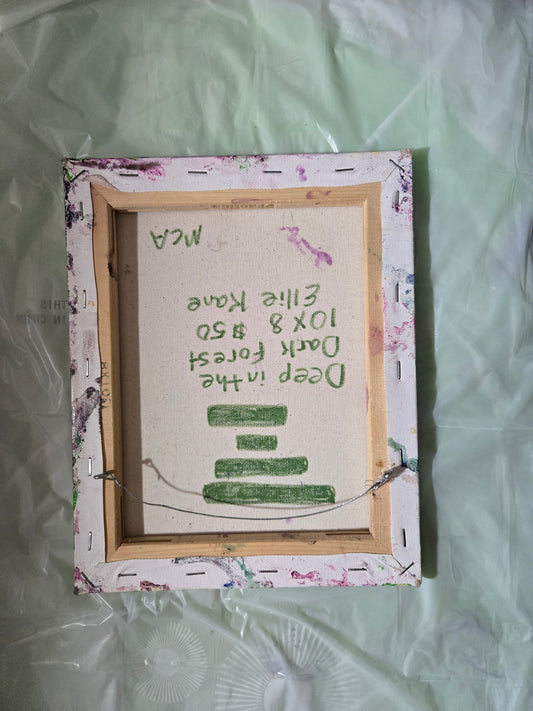 Deep in the
Dark Forest
10x8 $50
Ellie Kane
McA
THIS